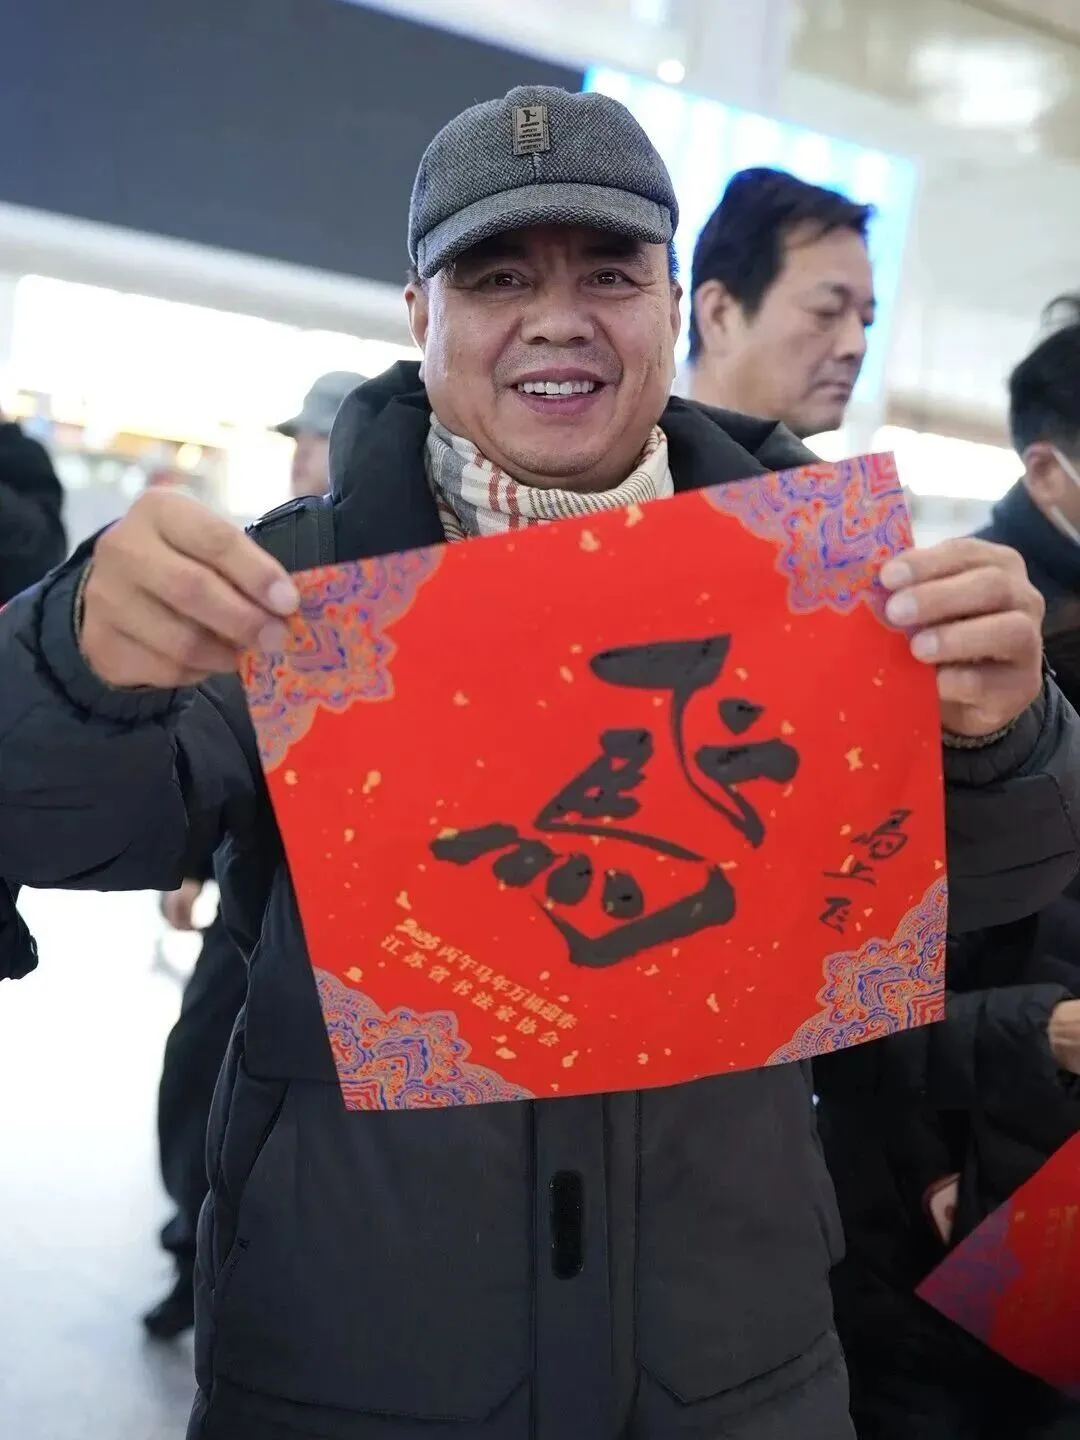 飞
馬
馬上飞
2026丙午马年万福迎春
江苏省书法家协会